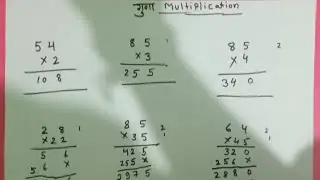 गुणा Multiplication
54
×2
108
85
×3
255
85 2
×4
340
28 1
×22
56
56×
85 2
×35 1
425
255×
2975
64 2
×45 1
320
256×
2880